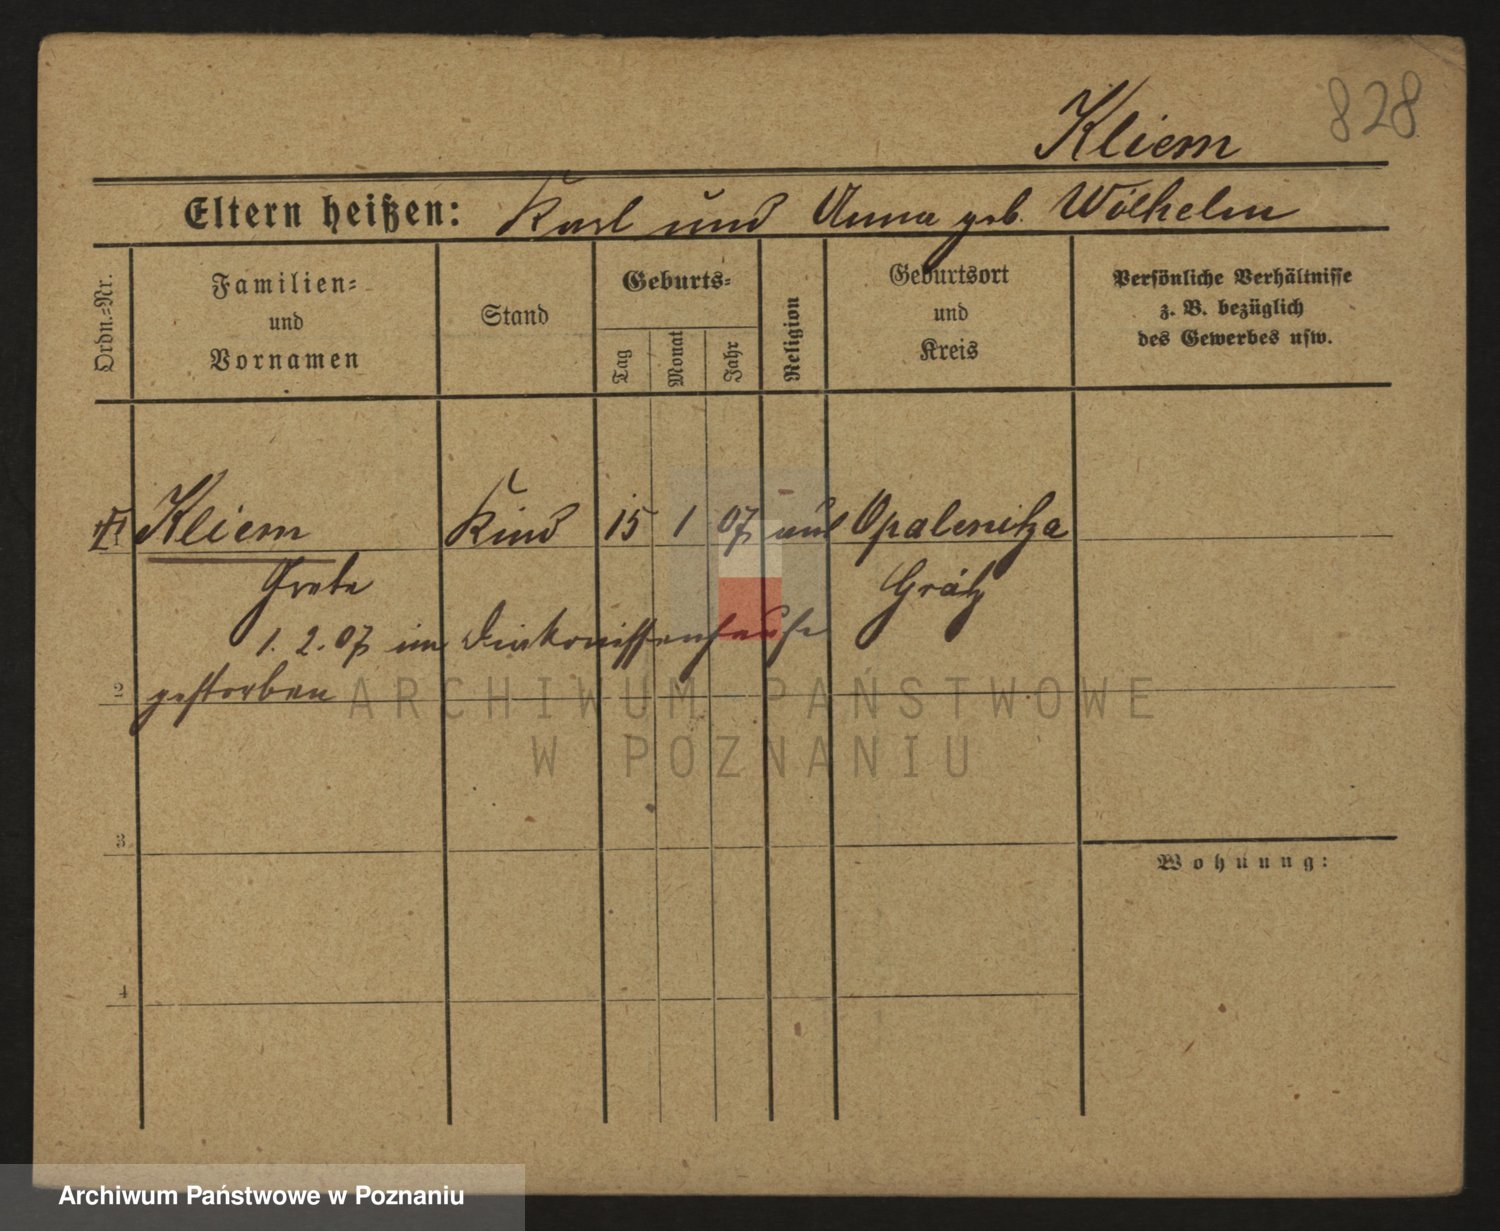 828
Kliem
Eltern heißen: Karl und Anna geb. Wölhelm
Ordn.=Nr.
Familien=
und
Vornamen
Stand
Geburts=
Tag
Monat
Jahr
Religion
Geburtsort
und
Kreis
Persönliche Verhältnisse
z. B. bezüglich
des Gewerbes usw.
1 Kliem Kind 15 1 07 Opalenitza
Grete Grätz
1. 2. 07 im Diakonissenhause
2 gestorben
3
Wohnung:
4
ARCHIWUM PAŃSTWOWE
W POZNANIU
Archiwum Państwowe w Poznaniu